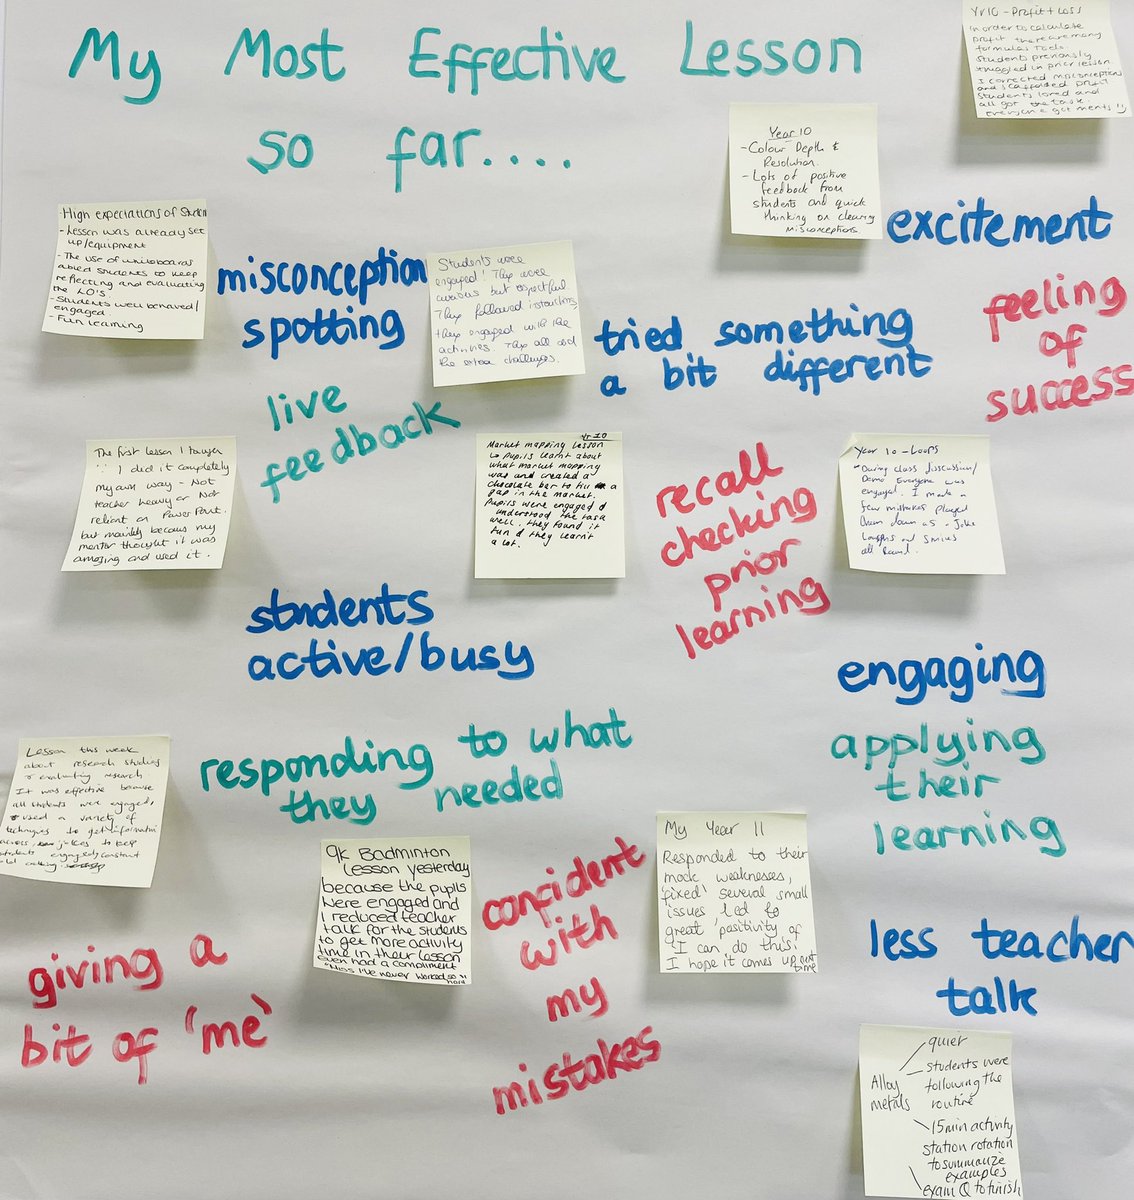 My Most Effective Lesson
so far....
Yr10 - Profit + Loss
In order to calculate
profit there are many
formulas tools.
Students previously
struggled in prior lesson
I corrected misconceptions
and scaffolded profit
Students loved and
all got the task
everyone got merits !!
Year 10
- Colour Depth &
Resolution.
- Lots of positive
feedback from
students and quick
thinking on clearing
misconceptions
excitement
- High expectations of Student
- Lesson was already set
up/equipment
- The use of whiteboards
abled students to keep
reflecting and evaluating
the LO's.
- Students well behaved/
engaged.
- Fun learning
misconception
spotting
Students were
engaged! They were
but respectful
They followed instructions,
they engaged with the
activities. They all did
the extra challenges.
tried something
a bit different
feeling
of
success
live
feedback
The first lesson I
∵ I did it completely
my own way - Not
teacher heavy or Not
reliant on PowerPoint.
but mainly because my
mentor thought it was
amazing and used it.
Yr 10
Market mapping Lesson
↳ Pupils learnt about
what market mapping
was and created a
chocolate bar to fill a
gap in the market.
Pupils were engaged &
understood the task
well. they found it
fun & they learnt
a lot.
recall
checking
prior
learning
Year 10 - Loops
During class discussion/
Demo everyone was
engaged. I made a
few mistakes played
them down as a Joke
Laughs and Smiles
all Round.
students
active/busy
engaging
applying
their
learning
responding to what
they needed
Lesson this week
about research studies
& evaluating research.
It was effective because
all students were engaged,
used a variety of
techniques to get information
across, jokes to keep
students engaged, constant
cold calling
9k Badminton
Lesson yesterday
because the pupils
were engaged and
I reduced teacher
talk for the students
to get more activity
time in their lesson
even had a compliment
"Miss I've never worked so
hard"
confident
with
my
mistakes
My Year 11
Responded to their
mock weaknesses,
'fixed' several small
issues, led to
great positivity of
'I can do this'.
I hope it comes up next
time
less teacher
talk
giving a
bit of 'me'
Alloy
metals
quiet
- students were
following the
routine
15min activity
station rotation
to summarize
examples
exam Q to finish